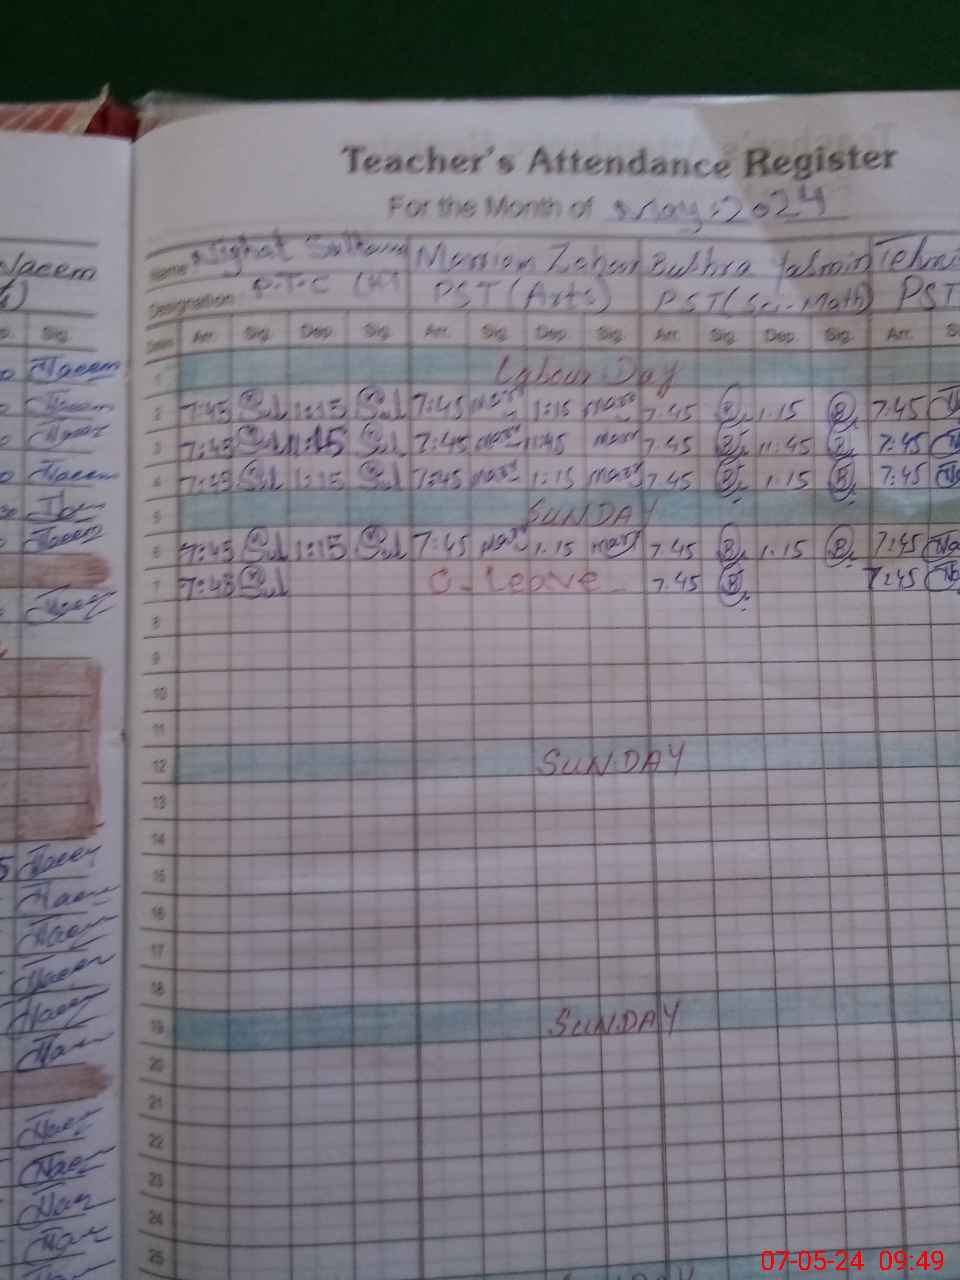 Teacher's Attendance Register
For the Month of May-2024
Naeem
Name Nighat Sultana Marriam Zahan Bushra Yasmin
Designation P.T.C PST (Arts) PST (Sci-Math) PST
Sig. Dates Arr. Sig. Dep. Sig. Arr. Sig. Dep. Sig. Arr. Sig. Dep. Sig. Arr.
Naeem 1 Labour Day
Naeem 2 7:45 1:15 7:45 mary 1:15 mary 7.45 B 1.15 B 7:45
Naeem 3 7:45 11:45 7:45 mary 11:45 mary 7.45 B 11.45 B 7:45
Naeem 4 7:45 1:15 7:45 mary 1:15 mary 7.45 B 1.15 B 7:45
5 SUNDAY
Naeem 6 7:45 1:15 7:45 mary 1.15 mary 7.45 B 1.15 B 7:45
Naeem 7 7:45 C-Leave 7.45 B 7:45
8
9
10
11
12 SUNDAY
13
14
Naeem 15
Naeem 16
Naeem 17
Naeem 18
Naeem 19 SUNDAY
Naeem 20
21
Naeem 22
Naeem 23
Naeem 24
Naeem 25
07-05-24 09:49